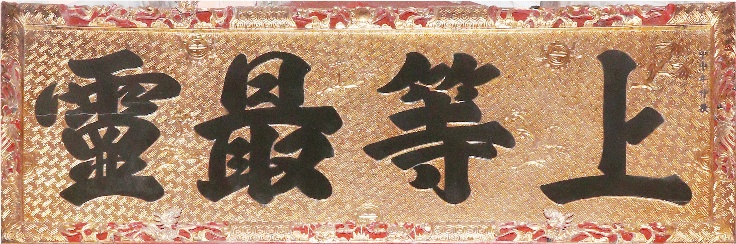 上等最靈